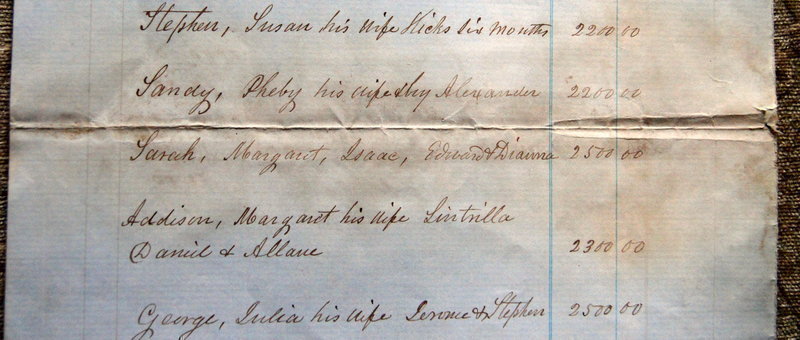 Stephen, Susan his wife Hicks six months 2200 00
Sandy, Pheby his wife & by Alexander 2200 00
Sarah, Margaret, Isaac, Edward & Dianna 2500 00
Addison, Margaret his wife Lintrilla
Daniel & Allane 2300 00
George, Julia his wife Jerome & Stephen 2500 00